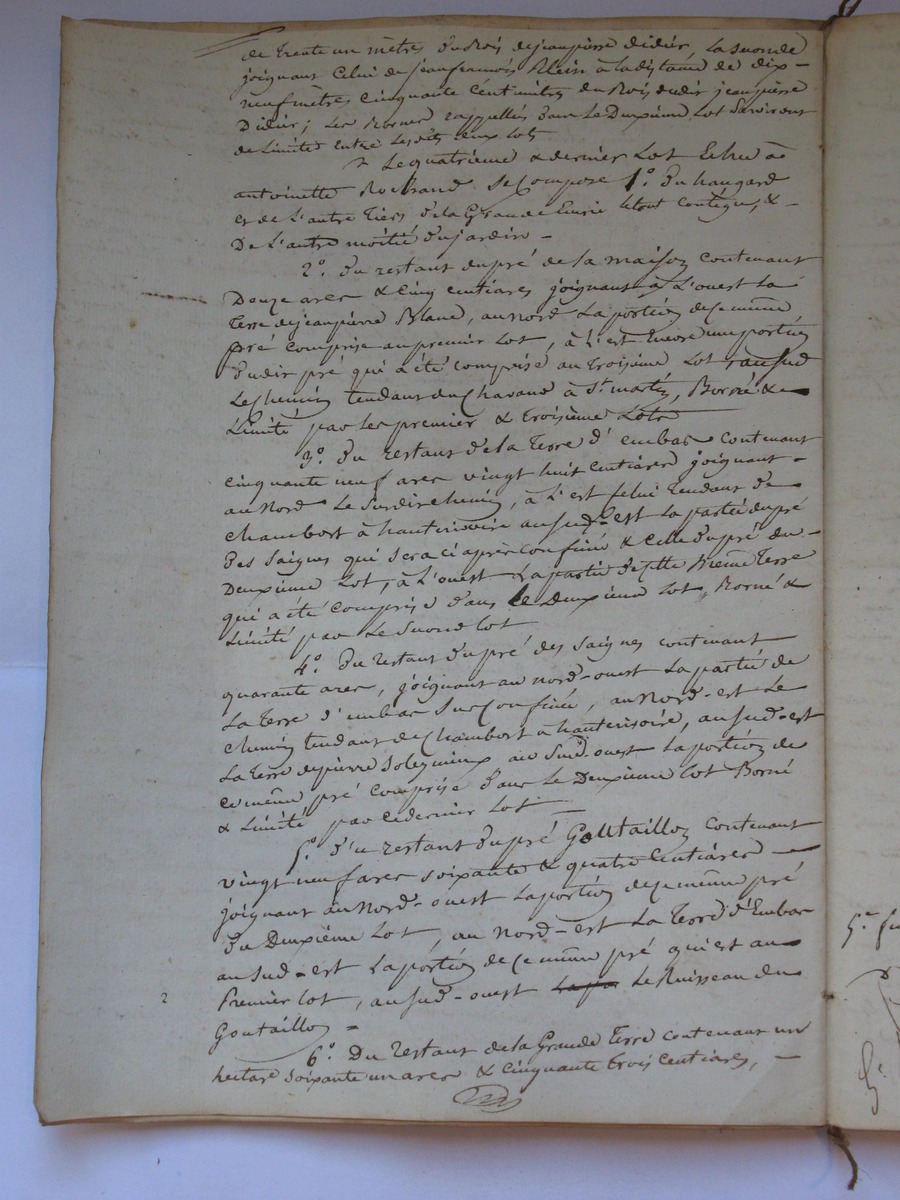 de trente un mètres du Bois de jean pierre didier, la seconde
joignant celui de jean francois Klein à la distance de dix-
neuf mètres cinquante centimètres du Bois dudit jean pierre
Didier; les Bornes rappellés dans le Deuxième Lot serviront
de Limites entre lesdits deux Lots
Le quatrième & dernier Lot Echu à
antoinette Rochand se compose 1.º du hangard
et de l'autre tiers de la Grande Ecurie le tout contigu, &
De l'autre moitié du jardin -
2.º du restant du pré de la maison contenant
Douze ares & cinq centiares joignant à l'ouest la
Terre de jean pierre Blanc, au nord la portion de ce même
pré comprise au premier Lot, à l'est encore une portion
dudit pré qui a été comprise au troisième Lot, au sud
le chemin tendant du Chavand à St. martin, Borné &
Limité par les premier & troisième Lots
3.º du restant de la Terre d'embas contenant
cinquante neuf ares vingt huit centiares joignant -
au nord le susdit chemin, à l'est celui tendant de
chambort à hauterivoire au sud-est la partie du pré
Des Saignes qui sera ci après confiné & celle du pré du -
Deuxième Lot, à l'ouest la partie de cette même Terre
qui a été comprise dans le Deuxième Lot, Borné &
Limité par le second Lot
4.º du restant du pré des Saignes contenant
quarante ares, joignant au nord-ouest la partie de
la Terre d'embas sus confinée, au nord-est le
chemin tendant de chambort à hauterivoire, au sud-est
la terre de pierre Soleymieux au sud-ouest la portion de
ce même pré comprise dans le Deuxième Lot Borné
& Limité par ce dernier Lot
5.º du restant du pré Goutaillon contenant
vingt neuf ares soixante & quatre centiares -
joignant au nord-ouest la portion de ce même pré
du Deuxième Lot, au nord-est la Terre d'Embas
au sud-est la portion de ce même pré qui est au
Premier lot, au sud-ouest le Ruisseau du
Goutaillon =
6.º Du restant de la Grande Terre contenant un
hectare soixante un ares & cinquante trois centiares, -